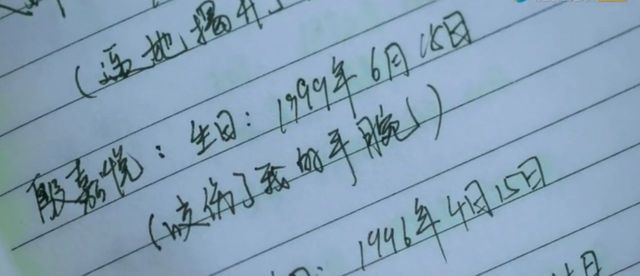 (逼她揭开
殷嘉悦：生日：1999年6月15日
(咬伤了我的手腕)
日：1996年4月15日
月